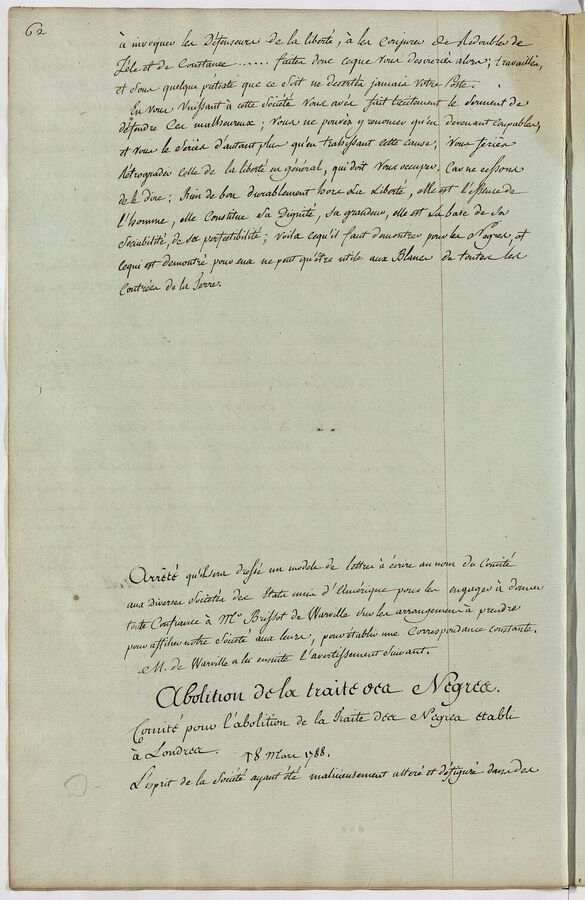 62
à invoquer les Défenseurs de la liberté, à les conjurer de Redoubler de
Zèle et de Constance ...... faites donc ceque vous desireriés alors; travailler,
et sous quelque prétexte que ce soit ne desertés jamais votre Poste.
En vous Unissant à cette Société vous avés fait tacitement le serment de
défendre Ces malheureux; vous ne pouvés y renoncer qu'en devenant coupables,
et vous le Seriés d'autant plus qu'en trahissant cette cause, Vous feriés
Rétrograder celle de la liberté en général, qui doit vous occuper. Car ne cessons
de le dire: Rien de bon durablement hors la Liberté, elle est l'essence de
l'homme, elle Constitue Sa Dignité, Sa grandeur, elle est la base de sa
Sociabilité, de sa perfectibilité; voila cequ'il faut demontrer pour les Nègres, et
cequi est demontré pour eux ne peut qu'être utile aux Blancs de toutes les
Contrées de la Terre.
Arrêté qu'il sera dressé un modele de lettres à écrire au nom du Comité
aux Diverses Societés des Etats unis d'Amérique pour les engager à donner
toute Confiance à Mr. Brissot de Warville sur les arrangemens à prendre
pour affilier notre Société aux leurs, pour établir une Correspondance constante.
M. de Warville a lu ensuite l'avertissement suivant.
Abolition de la traite des Nègres.
Comité pour l'abolition de la Traite des Nègres etabli
à Londres. 18 Mars 1788.
L'esprit de la Société ayant été malicieusement alteré et défiguré dans des